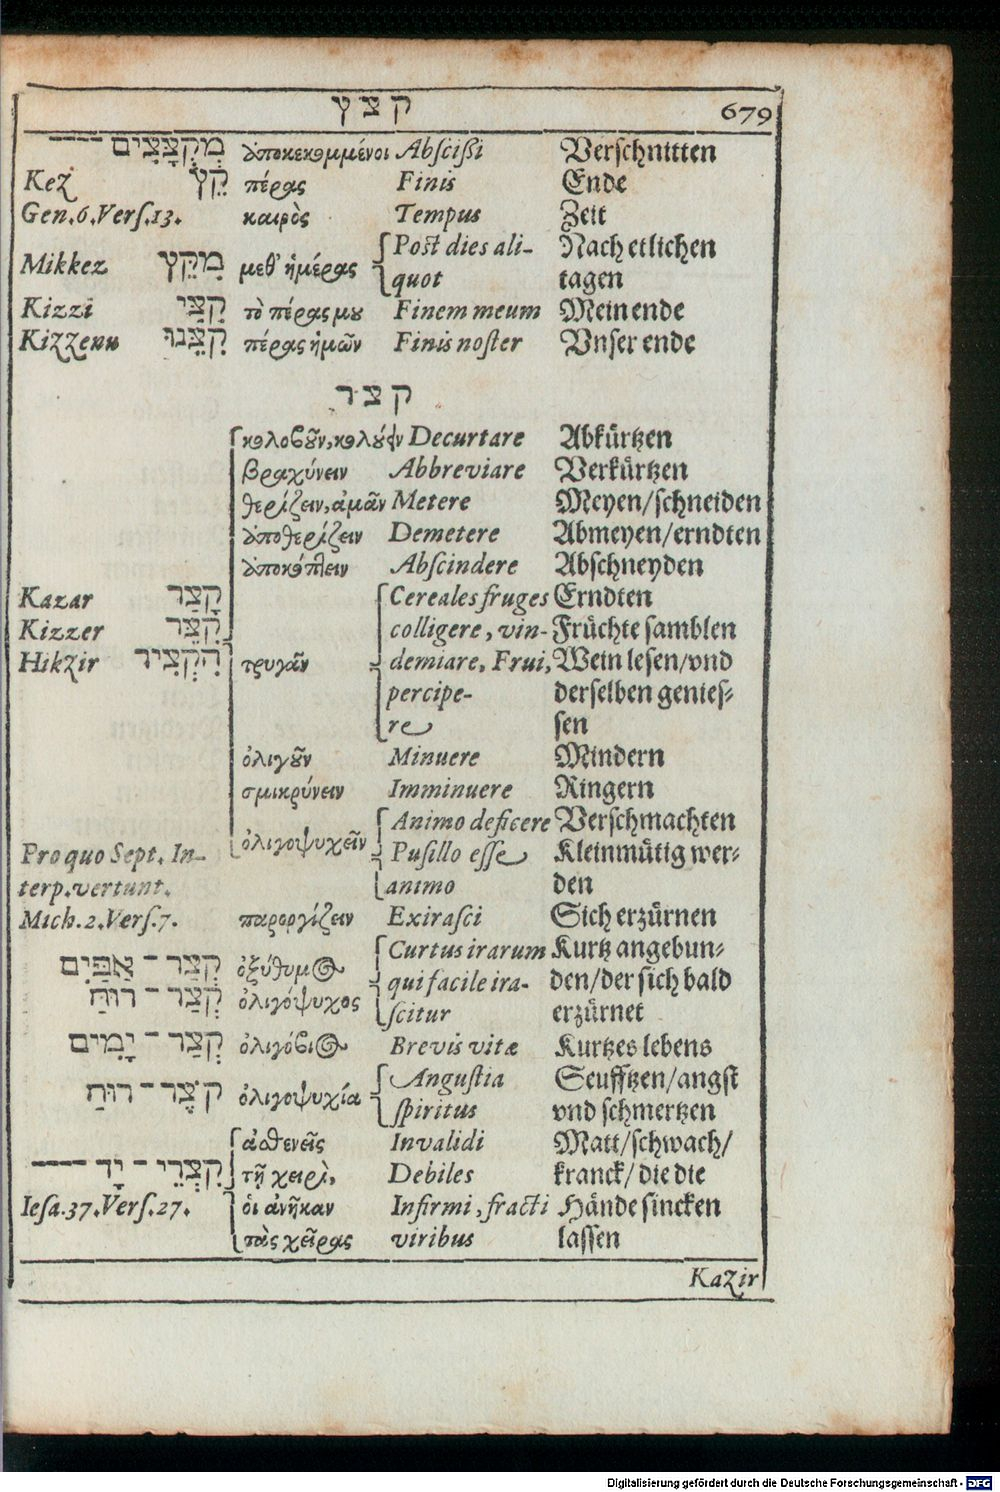 ק צ ץ 679
מְקֻצָּצִים ἀποκεκομμένοι Abscißi Verschnitten
Kez קֵץ πέρας Finis Ende
Gen.6.Vers.13. καιρὸς Tempus Zeit
Mikkez מִקֵּץ μεθ' ἡμέρας Post dies ali- Nach etlichen
quot tagen
Kizzi קִצִּי τὸ πέρας μου Finem meum Mein ende
Kizzenu קִצֵּנוּ πέρας ἡμῶν Finis noster Vnser ende
ק צ ר
κολοβοῦν, κολούειν Decurtare Abkürtzen
βραχύνειν Abbreviare Verkürtzen
θερίζειν, ἀμᾶν Metere Meyen/schneiden
ἀποθερίζειν Demetere Abmeyen/erndten
ἀποκόπτειν Abscindere Abschneyden
Kazar קָצַר Cereales fruges Erndten
Kizzer קִצֵּר colligere, vin- Früchte samblen
Hikzir הִקְצִיר τρυγᾶν demiare, Frui, Wein lesen/vnd
percipe- derselben genies-
re sen
ὀλιγοῦν Minuere Mindern
σμικρύνειν Imminuere Ringern
Animo deficere Verschmachten
Pro quo Sept. In- ὀλιγοψυχεῖν Pusillo esse Kleinmütig wer-
terp.vertunt. animo den
Mich.2.Vers.7. παροργίζειν Exirasci Sich erzürnen
Curtus irarum Kurtz angebun-
קְצַר־אַפַּיִם ὀξύθυμος qui facile ira- den/der sich bald
קְצַר־רוּחַ ὀλιγόψυχος scitur erzürnet
קְצַר־יָמִים ὀλιγόβιος Brevis vitæ Kurtzes lebens
Angustia Seufftzen/angst
קֹצֶר־רוּחַ ὀλιγοψυχία spiritus vnd schmertzen
ἀσθενεῖς Invalidi Matt/schwach/
קִצְרֵי־יָד τῇ χειρὶ, Debiles kranck/die die
Iesa.37.Vers.27. οἱ ἀνῆκαν Infirmi, fracti Hände sincken
τὰς χεῖρας viribus lassen
Kazir
Digitalisierung gefördert durch die Deutsche Forschungsgemeinschaft - DFG